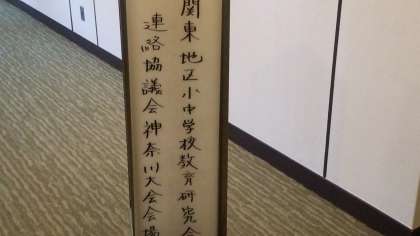 関東地区小中学校教育研究会
連絡協議会神奈川大会会場